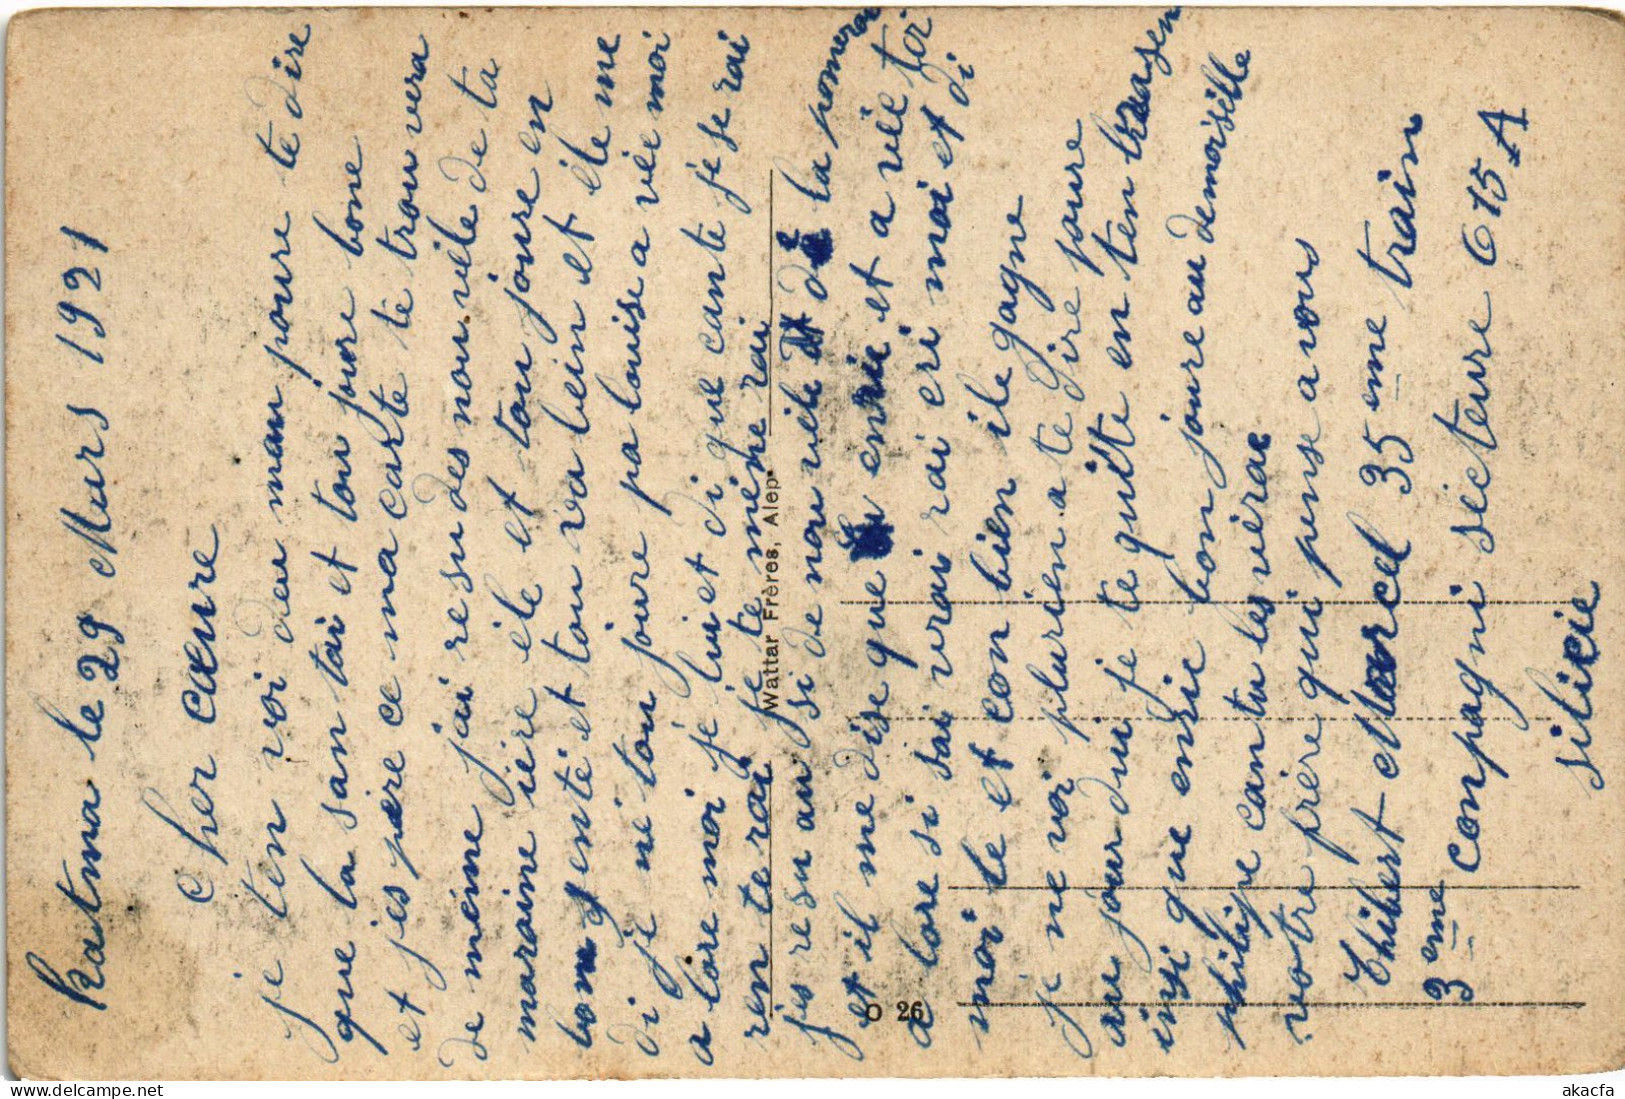 Katma le 29 Mars 1921
Cher cœure
je ten voi deu mau poure te dire
que la san tai et tou joure bone
et jes père ce ma carte te trouvera
de meine jai resu des nou vele de ta
maraine ière éle et tou joure en
bone senté et tou va bein et éle me
di je né tou joure pa louise a véc moi
a lore moi je lui et di que canté jé se rai
ren te rai je te mène rai
jes resu au si de nou vèle de la
et il me dise que enrie et a véc toi
a lore si sai vrai rai cri moi et di
moi le et con bien ile gagne
je ne voi plu rien a te dire poure
au jour dui je te quite en ten
insi que enrie bon joure au demoiselle
philipe can tu les vérae
votre frère qui pense a vous
Thibert Marcel 35eme train
3eme conpagni sécteure 615 A
silicie
Wattar Frères, Alep.
O 26
akacfa